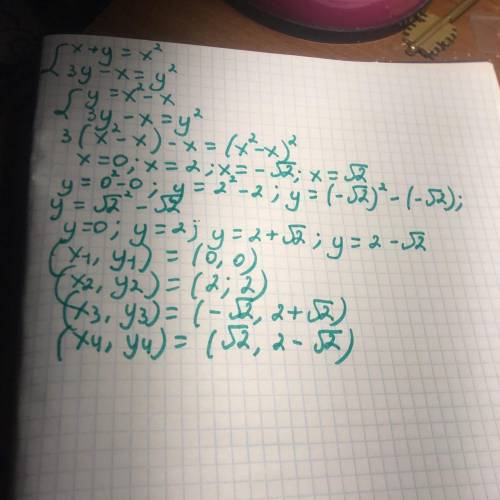 {x+y=x²
3y-x=y²
{y=x²-x
3y-x=y²
3(x²-x)-x=(x²-x)²
x=0; x=2; x=-√2; x=√2
y=0²-0; y=2²-2; y=(-√2)²-(-√2);
y=√2²-√2
y=0; y=2; y=2+√2; y=2-√2
(x1, y1)=(0, 0)
(x2, y2)=(2; 2)
(x3, y3)=(-√2, 2+√2)
(x4, y4)=(√2, 2-√2)